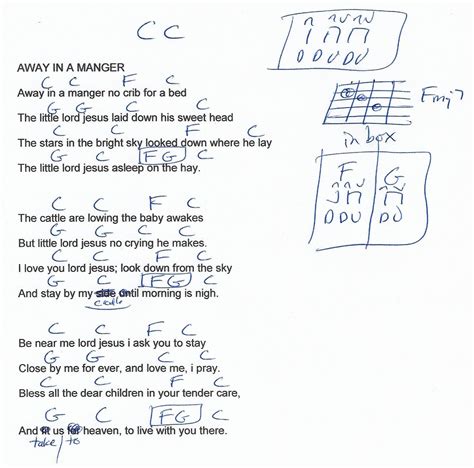 C C
D DUDU
AWAY IN A MANGER
C C F C
Away in a manger no crib for a bed
G G C C
The little lord jesus laid down his sweet head
Fmaj7
C C F C
The stars in the bright sky looked down where he lay
in box
G C F G C
The little lord jesus asleep on the hay.
F G
D DU DU
C C F C
The cattle are lowing the baby awakes
G G C C
But little lord jesus no crying he makes.
C C F C
I love you lord jesus; look down from the sky
G C F G C
And stay by my side until morning is nigh.
cradle
C C F C
Be near me lord jesus i ask you to stay
G G C C
Close by me for ever, and love me, i pray.
C C F C
Bless all the dear children in your tender care,
G C F G C
And fit us for heaven, to live with you there.
take / to